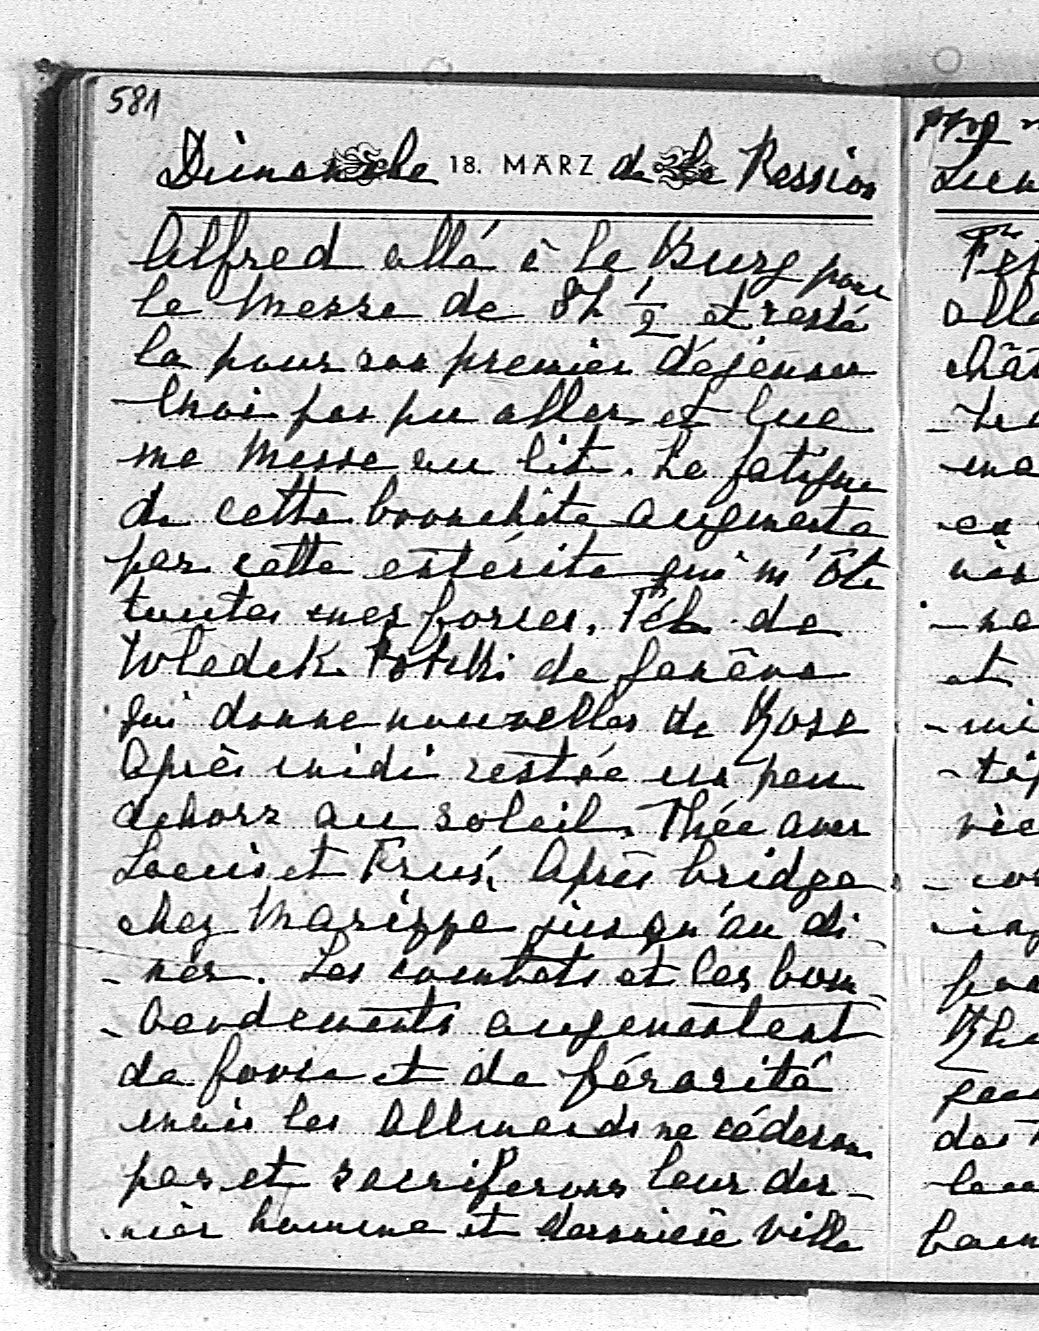 581
Dimanche 18. MÄRZ de la Passion
Alfred allé à la Burg pour
la Messe de 8h 1/2 et resté
là pour son premier déjeuner
Moi pas pu aller et lue
ma Messe au lit. La fatigue
de cette bronchite augmenta
par cette entérite qui m'ôte
toutes mes forces. Tél. de
Wladek Potocki de Genève
qui donne nouvelles de Rose
Après midi restée un peu
dehors au soleil. Thée avec
Louis et Erus. Après bridge
chez Marizza jusqu'au di-
- ner. Les combats et les bom-
- bardements augmentent
de force et de férocité
mais les Allemands ne cèderons
pas et sacriferons leur der-
nier homme et dernière ville
Lun
Fêt
allé
- mi
et